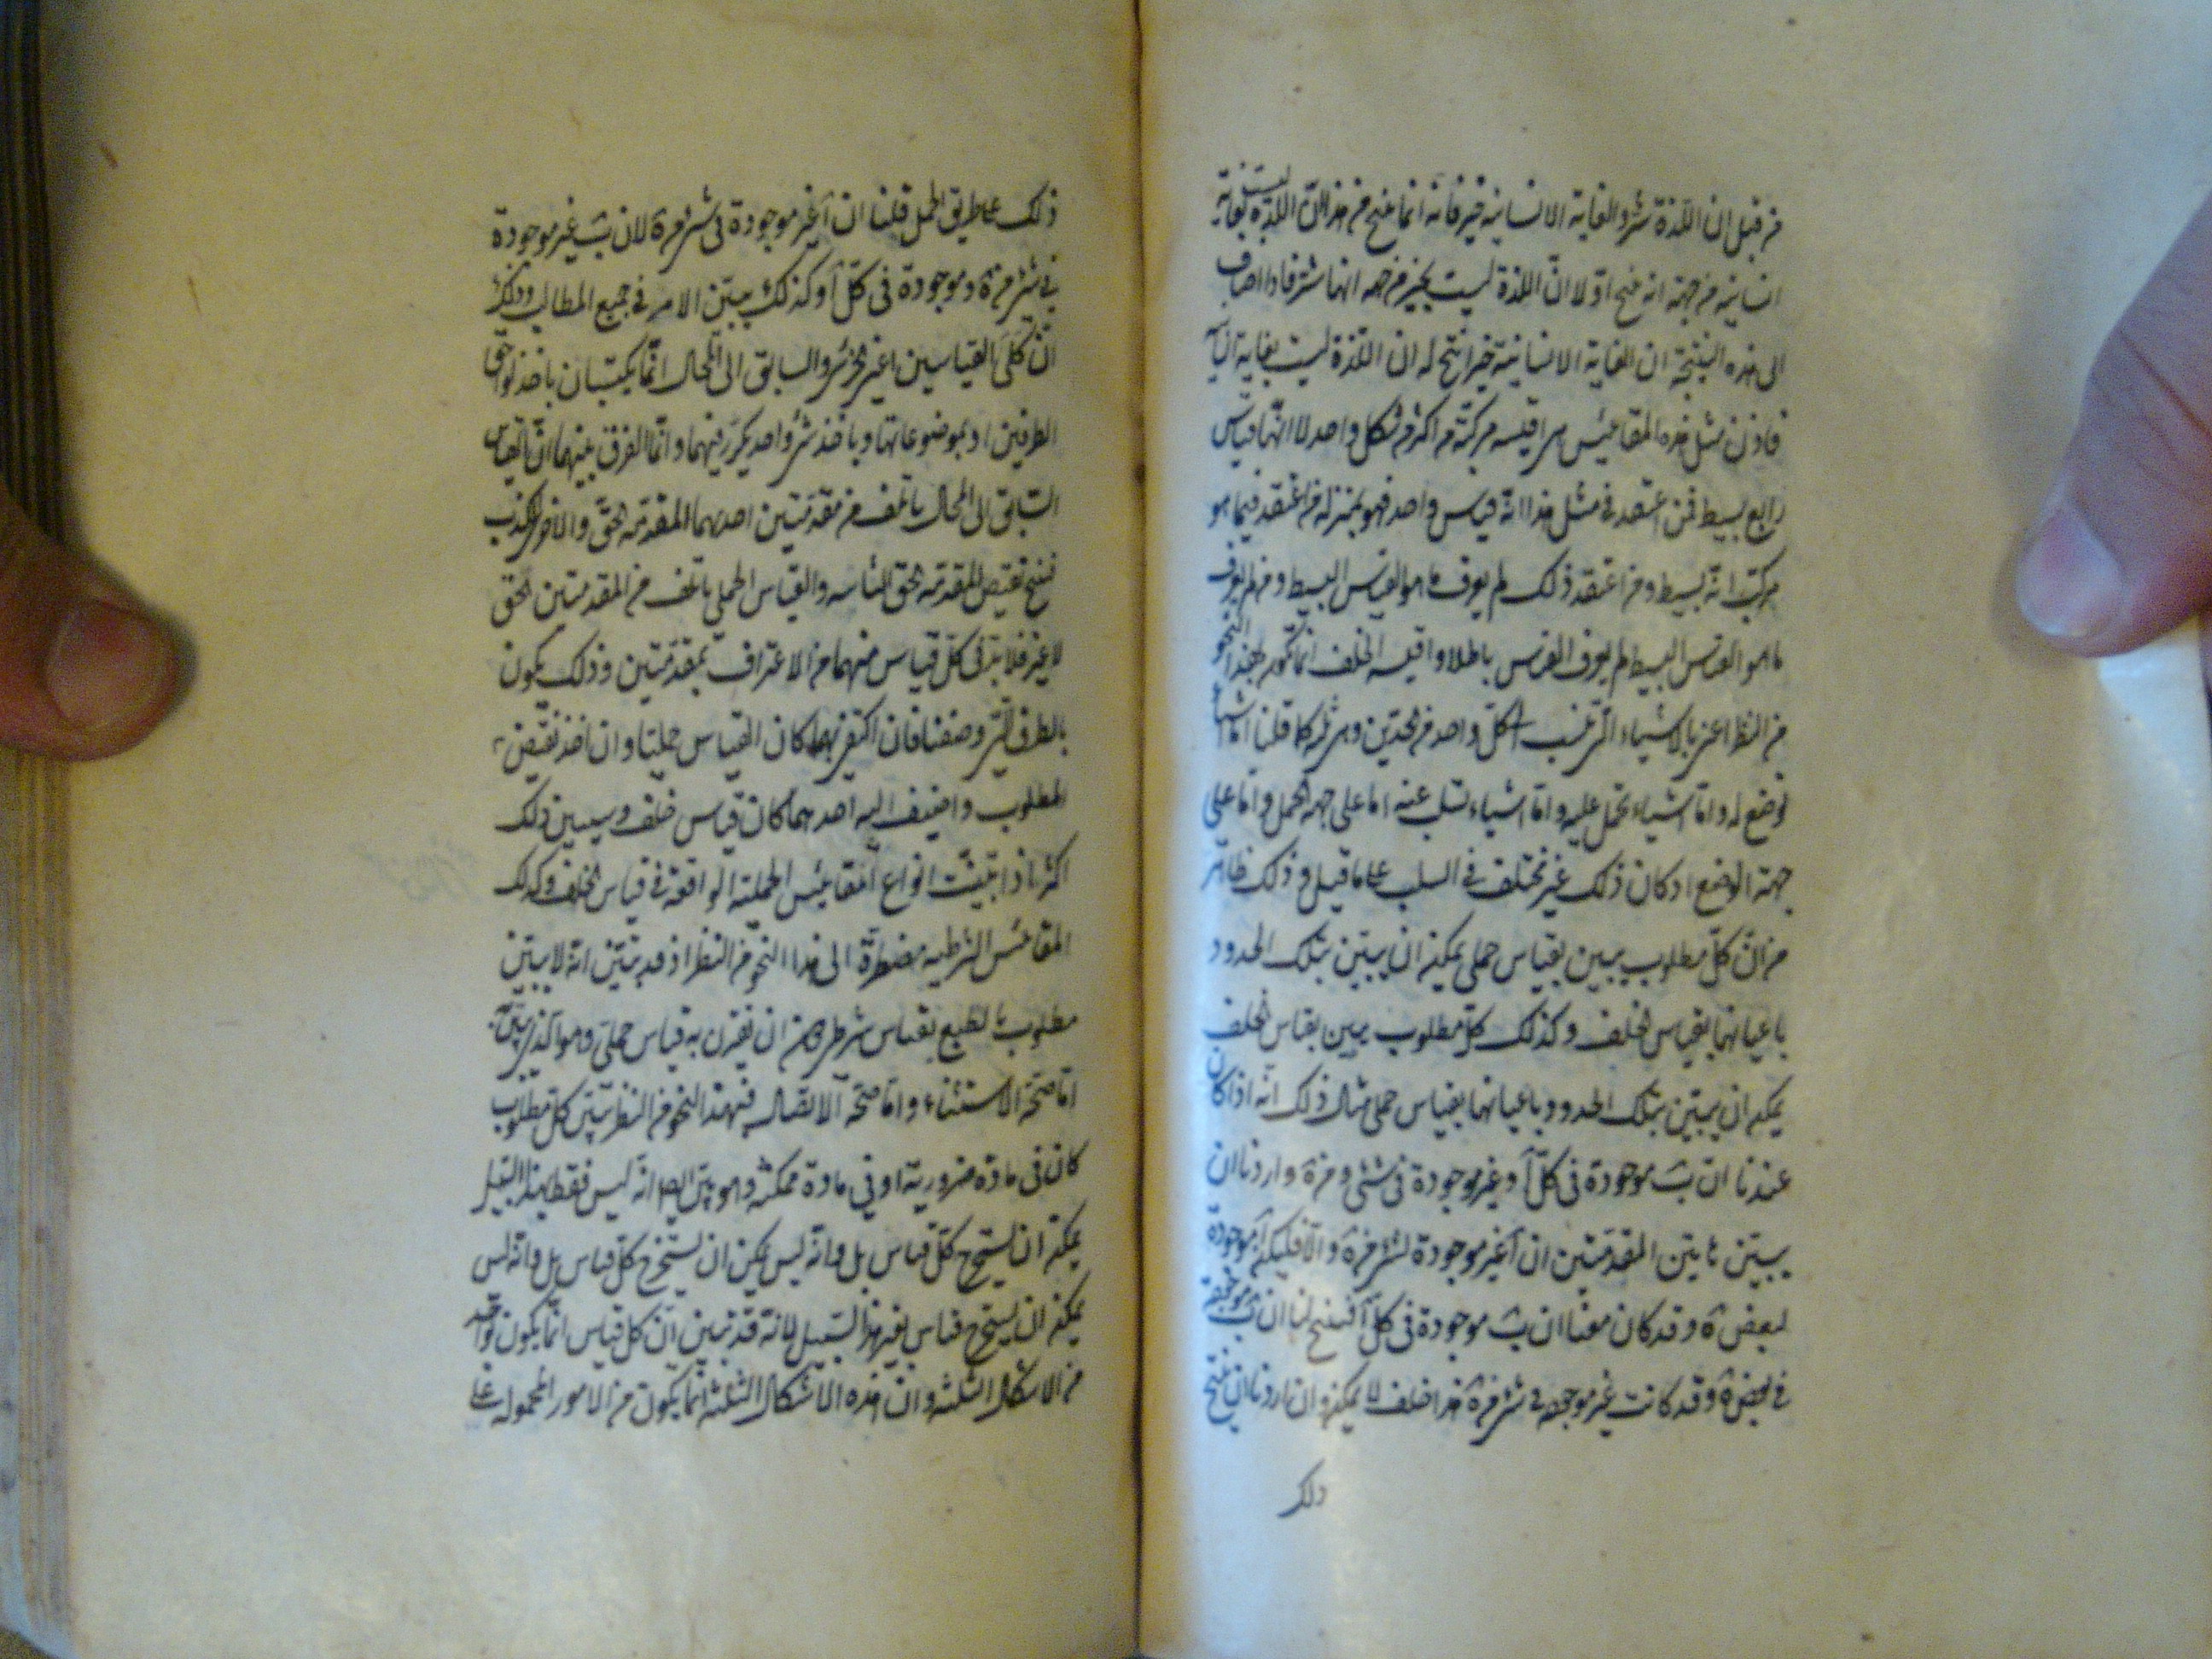 من قبل ان اللذة شر والغاية الانسانية خير فانه انما ينتج من هذا ان اللذة ليست بغاية
انسانية من جهة انه ينتج اولا ان اللذة ليست بخير من جهة انها شر فاذا اضاف
الى هذه النتيجة ان الغاية الانسانية خير انتج له ان اللذة ليست بغاية انسانية
فاذن مثل هذه المقاييس هى اقيسه مركبة من اكثر من شكل واحد لا انها قياس
رابع بسيط فمن اعتقد فى مثل هذا انه قياس واحد فهو بمنزلة من اعتقد فيما هو
مركب انه بسيط ومن اعتقد ذلك لم يعرف ما هو القياس البسيط ومن لم يعرف
ما هو القياس البسيط لم يعرف القياس باطلاق واقيسه الخلف انما تكون بهذا النحو
من النظر اعنى بالاشياء التى تنسب الى كل واحد من الحدين وهى ثلثه كما قلنا اما اشياء
توضع له واما اشياء تحمل عليه واما اشياء تسلب عنه اما على جهة الحمل واما على
جهة الوضع اذ كان ذلك غير مختلف فى السلب على ما قيل وذلك ظاهر
من ان كل مطلوب يبين بقياس حملى يمكن ان يبين بتلك الحدود
باعيانها بقياس الخلف وكذلك كل مطلوب يبين بقياس الخلف
يمكن ان يبين بتلك الحدود باعيانها بقياس حملى مثال ذلك انه اذا كان
عندنا ان ب موجودة فى كل آ وغير موجودة فى شئ من ة واردنا ان
يبين بهاتين المقدمتين ان آ غير موجودة لشئ من ة والا فليكن آ موجودة
لبعض ة وقد كان معنا ان ب موجودة فى كل آ فينتج لنا ان ب موجودة
فى بعض ة وقد كانت غير موجودة فى شئ من ة هذا خلف لا يمكن وان اردنا ان ينتج
ذلك
ذلك على طريق الحمل قلنا ان آ غير موجودة فى شئ من ة لان ب غير موجودة
فى شئ من ة وموجودة فى كل آ وكذلك يبين الامر فى جميع المطالب وذلك
ان كلى القياسين اعنى الجزمى والسابق الى المحال انما يكتسبان باخذ لواحق
الطرفين او بموضوعاتها وباخذ شئ واحد يكرر فيهما وانما الفرق بينهما ان القياس
السابق الى المحال ياتلف من مقدمتين احدهما المقدمة الحق والاخرى الكذب
فينتج نقيض المقدمة الحق الثانيه والقياس الحملى ياتلف من المقدمتين الحق
لا غير فلا بد فى كل قياس منهما من الاعتراف بمقدمتين وذلك يكون
بالطرق التى وصفنا فان اكتفى بهما كان القياس حمليا وان اخذ نقيض
المطلوب واضيف اليه احدهما كان قياس خلف وسيبين ذلك
اكثر اذا تبينت انواع المقاييس الحملية الواقعة فى قياس الخلف وكذلك
المقاييس الشرطيه مضطرة الى هذا النحو من النظر اذ قد تبين انه لا يبين
مطلوب بالطبع بقياس شرطى دون ان يقترن به قياس حملى وهو الذى يبين
اما صحة الاستثناء واما صحة الاتصال فبهذا النحو من النظر يبين كل مطلوب
كان فى مادة ضرورية او فى مادة ممكنة وهو بين ايضا انه ليس فقط بهذا السبيل
يمكن ان يستخرج كل قياس بل وانه ليس يمكن ان يستخرج كل قياس بل وانه ليس
يمكن ان يستخرج قياس بغير هذا السبيل لانه قد تبين ان كل قياس انما يكون بواحد
من الاشكال الثلثه وان هذه الاشكال الثلثه انما يكون من الامور المحموله على